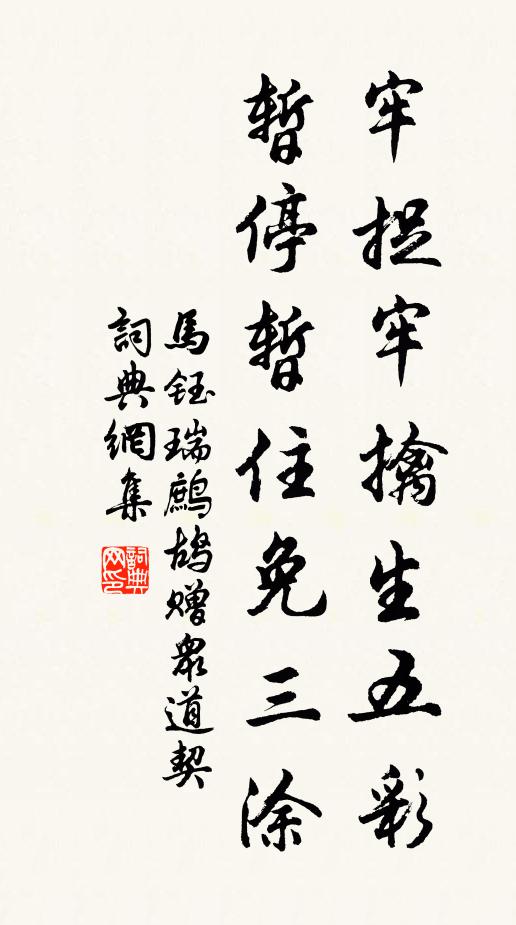 牢捉牢擒生五彩
暫停暫住免三涂
馬鈺瑞鷓鴣贈眾道契
詞典網集
詞典網印